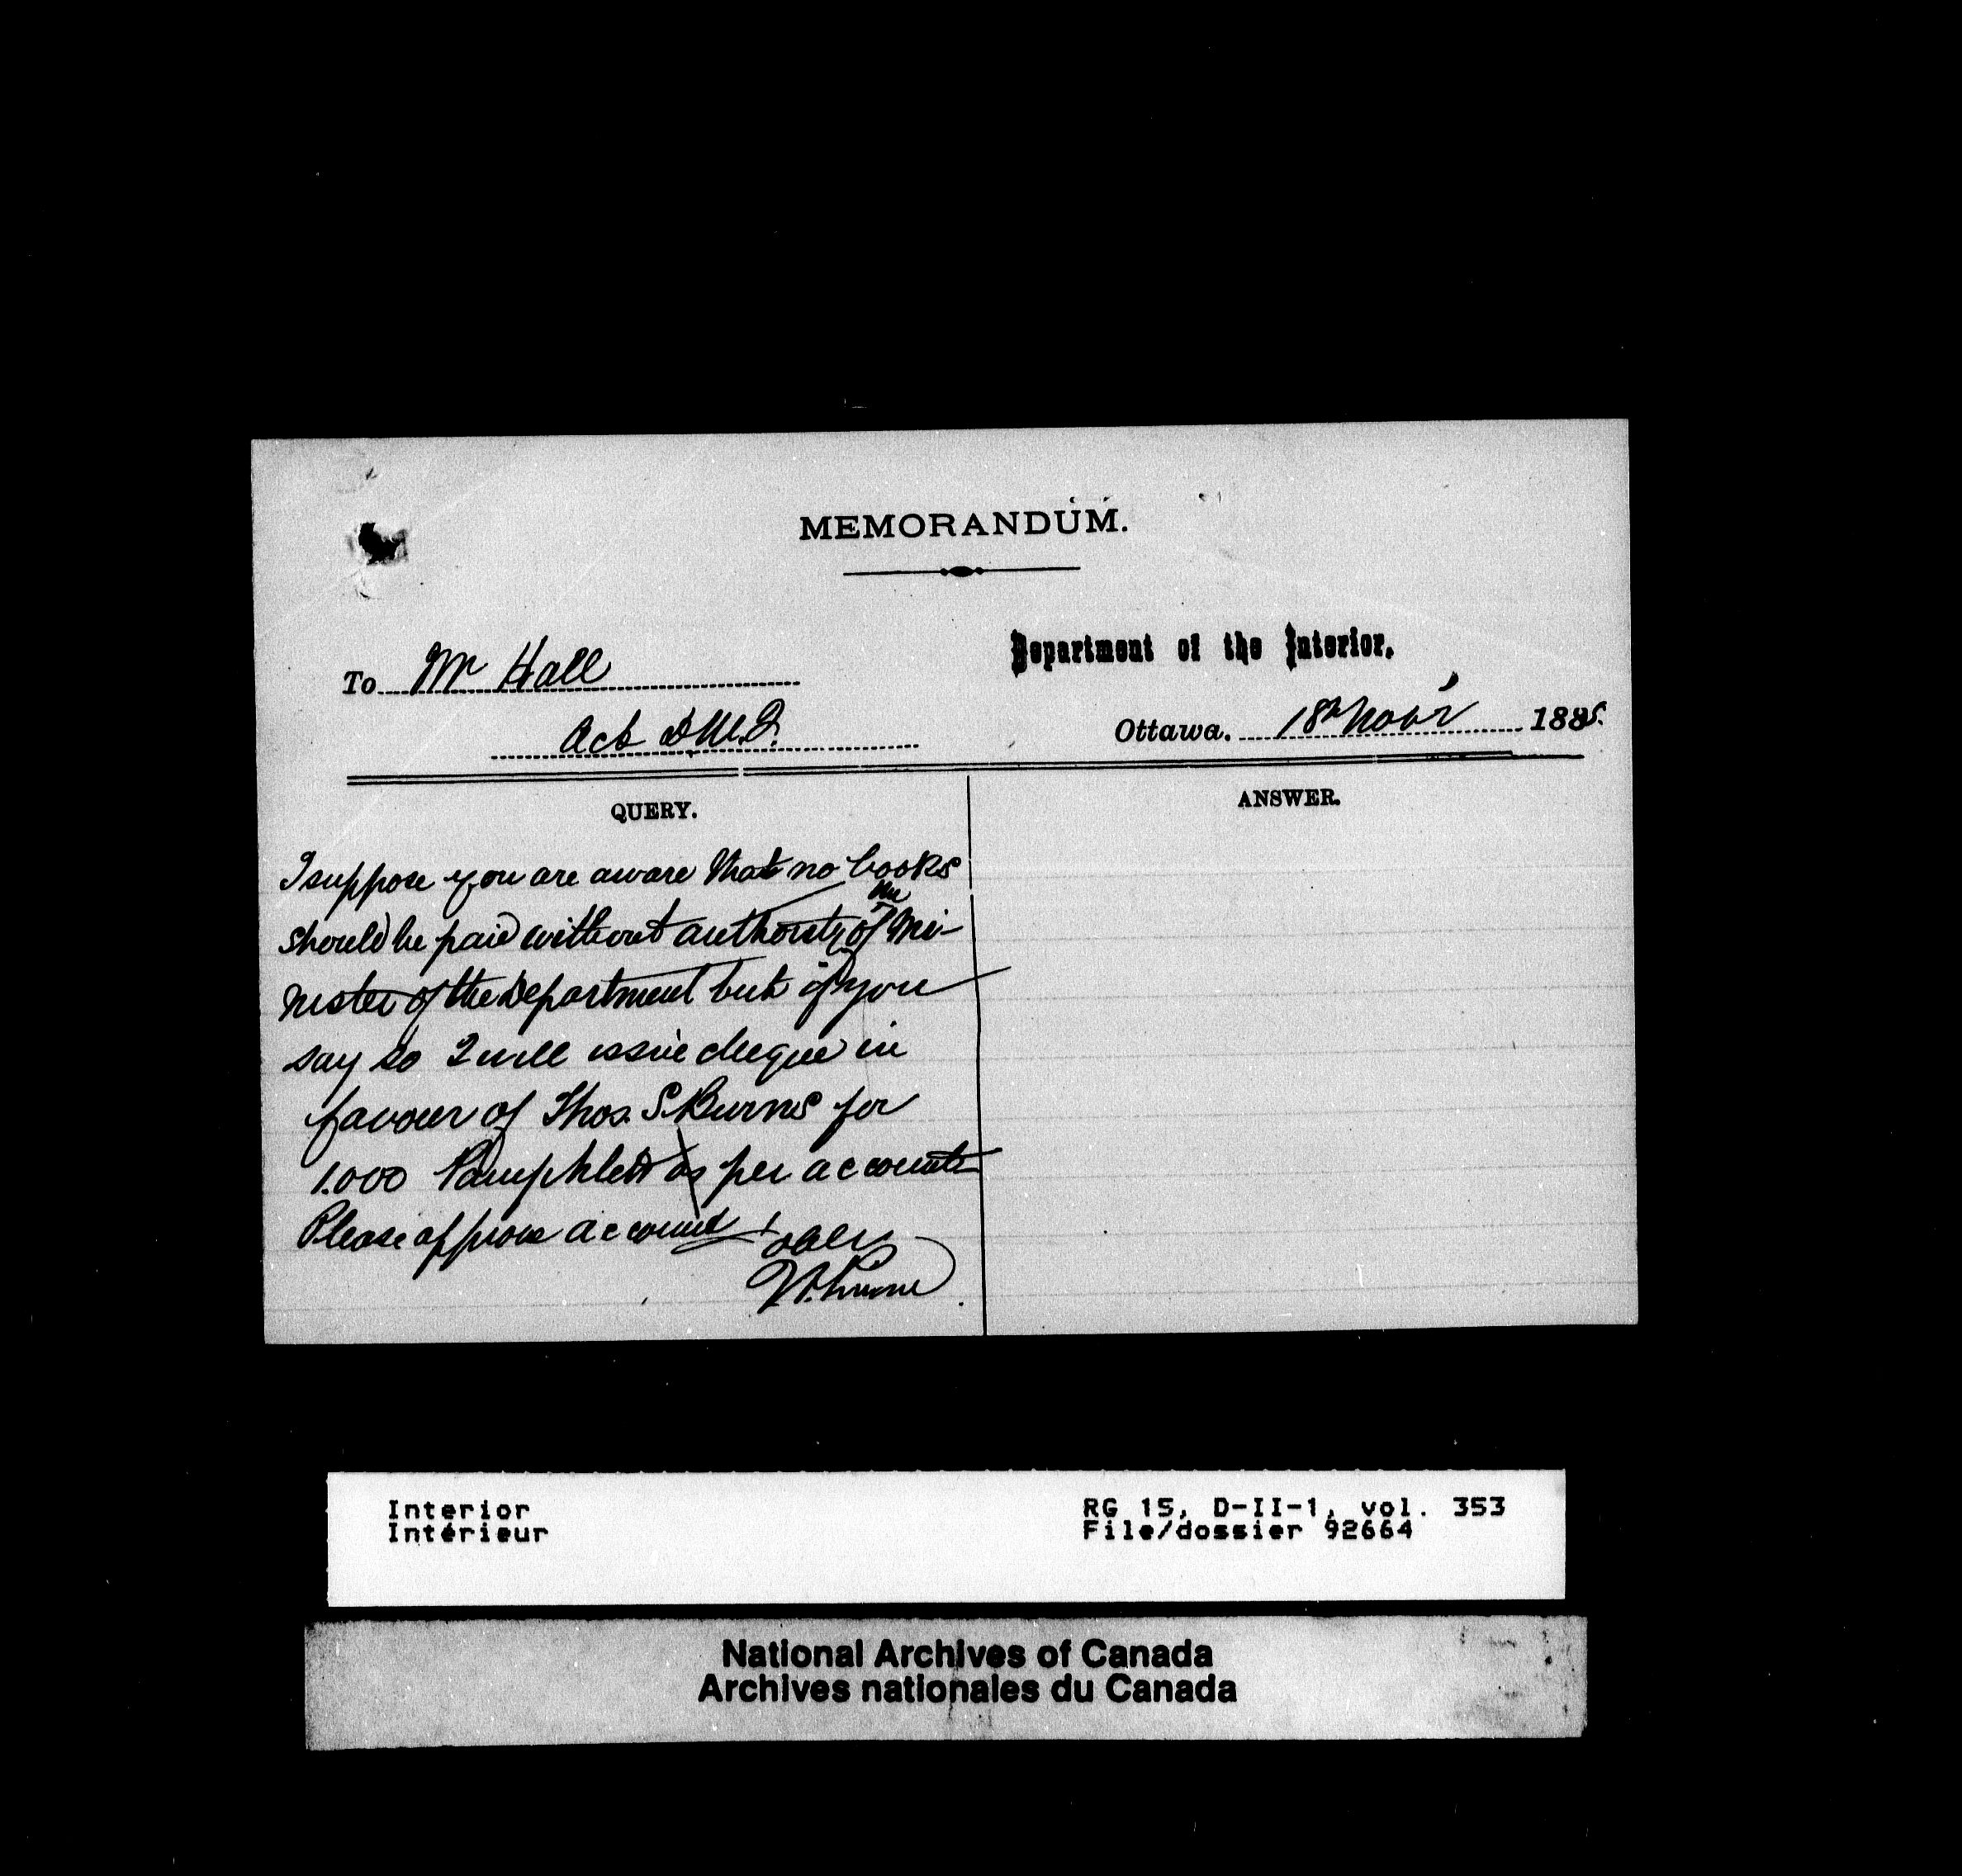 MEMORANDUM.
To Mr Hall
Department of the Interior.
Act D.M.I.
Ottawa. 18th Novr 1885.
QUERY.
ANSWER.
I suppose you are aware that no books
should be paid without authority of the Mi-
nister of the Department but if you
say so I will issue cheque in
favour of Thos. S. Burns for
1.000 Pamphlets as per account
Please approve account
Interior
Intérieur
RG 15, D-II-1, vol. 353
File/dossier 92664
National Archives of Canada
Archives nationales du Canada